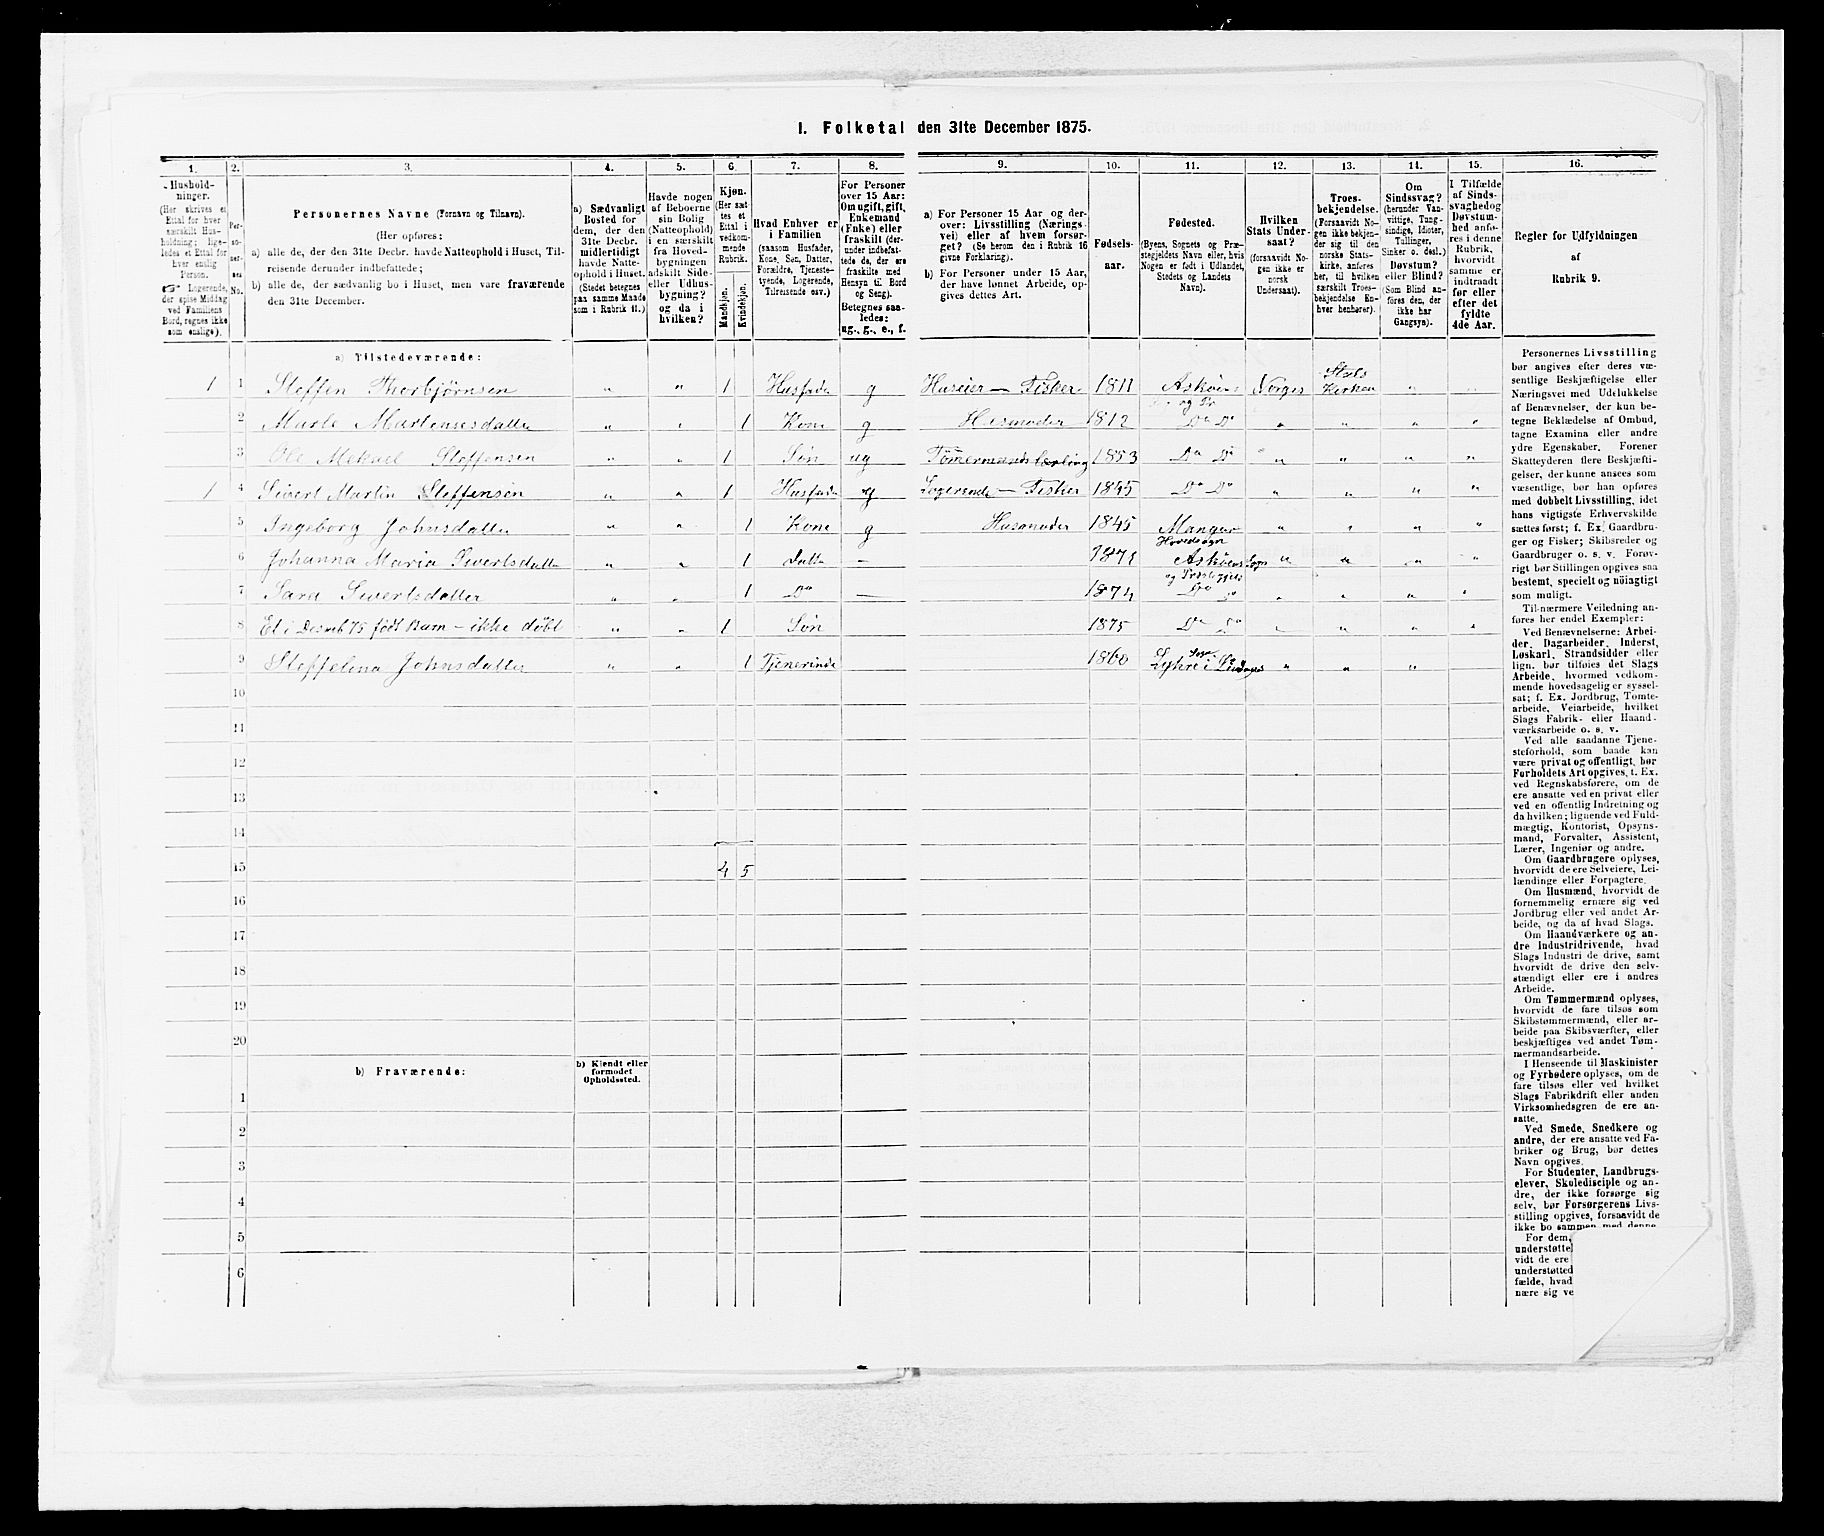 1. Folketal den 31te December 1875.
1. 2. 3. 4. 5. 6. 7. 8. 9. 10. 11. 12. 13. 14. 15. 16.
Husholdninger.
(Her skrives et
Ettal for hver
særskilt Husholdning; ligeledes
et Ettal for
hver enslig
Person.
Logerende,
der spise Middag
ved Familiens
Bord, regnes ikke
som enslige).
Personernes No.
Personernes Navne (Fornavn og Tilnavn).
(Her opføres:
a) alle de, der den 31te Decbr. havde Natteophold i Huset, Tilreisende
derunder indbefattede;
b) alle de, der sædvanlig bo i Huset, men vare fraværende
den 31te December.
a) Sædvanligt
Bosted for
dem, der den
31te Decbr.
midlertidigt
havde Natteophold
i Huset.
(Stedet betegnes
paa samme Maade
som i Rubrik 11.)
Havde nogen
af Beboerne
sin Bolig
(Natteophold)
i en særskilt
fra Hovedbygningen
adskilt Side-
eller Udhusbygning?
og da i
hvilken?
Kjøn.
(Her sættes
et
Ettal i
vedkommende
Rubrik.
Mandkjøn.
Kvindekjøn.
Hvad Enhver er
i Familien
(saasom Husfader,
Kone, Søn, Datter,
Forældre, Tjenestetyende,
Logerende,
Tilreisende osv.)
For Personer
over 15 Aar:
Om ugift, gift,
Enkemand
(Enke) eller
fraskilt (derunder
indbefattede
de, der ere
fraskilte med
Hensyn til Bord
og Seng).
Betegnes saaledes:
ug., g., e., f.
a) For Personer 15 Aar og derover:
Livsstilling (Næringsvei)
eller af hvem forsørget?
(Se herom den i Rubrik 16
givne Forklaring).
b) For Personer under 15 Aar,
der have lønnet Arbeide, opgives
dettes Art.
Fødselsaar.
Fødested.
(Byens, Sognets og Præstegjeldets
Navn eller, hvis
Nogen er født i Udlandet,
Stedets og Landets
Navn).
Hvilken
Stats Undersaat?
(forsaavidt Nogen
ikke er
norsk
Undersaat).
Troesbekjendelse.
(Forsaavidt Nogen
ikke bekjender
sig til den
norske Statskirke,
anføres
her, til hvilken
særskilt Troesbekjendelse
Enhver
henhører).
Om
Sindssvag?
(herunder Vanvittige,
Tungsindige,
Idioter,
Tullinger,
Sinker o. desl.)
Døvstum?
eller Blind?
(Som Blind anføres
den, der
ikke har
Gangsyn).
I Tilfælde
af Sindssvaghed
og
Døvstumhed
anføres
i denne
Rubrik,
hvorvidt
samme er
indtraadt
før eller
efter det
fyldte
4de Aar.
Regler for Udfyldningen
af
Rubrik 9.
a) Tilstedeværende:
1 1 Steffen Thorbjørnsen " " 1 Husfader g Huseier — Fisker 1811 Askøens Norges Stats Kirken " "
og Pr
2 Marte Martensesdatter " " 1 Kone g Husmoder 1812 Do Do " " " "
3 Ole Mekael Steffensen " " 1 Søn ug Tømmermandslærling 1853 Do Do " " " "
1 4 Sivert Martin Steffensen " " 1 Husfader g Logerende — Fisker 1845 Do Do " " " "
5 Ingeborg Johnsdatter " " 1 Kone g Husmoder 1845 Manger " " " "
Hovedsogn
6 Johanna Maria Siverlsdatter " " 1 Datter — 1871 Askøens Sogn " " " "
og Præstegjels
7 Sara Siverlsdatter " " 1 Do — 1874 Do Do " " " "
8 Et i Decmb 75 født Barn – ikke døbt " " 1 Søn 1875 Do Do " " " "
9 Steffelena Johnsdatter " " 1 Tjenerinde 1860 Sogn i " " "
10
11
12
13
14
15 4 5
16
17
18
19
20
b) Fraværende:
b) Kjendt eller
formodet
Opholdssted.
1
2
3
4
5
6
Personernes Livsstilling
bør angives efter deres væsentlige
Beskjæftigelse eller
Næringsvei med Udelukkelse
af Benævnelser, der kun betegne
Beklædelse af Ombud,
tagne Examina eller andre
ydre Egenskaber. Forener
Skatteyderen flere Beskjæftigelser,
der kunne ansees som
væsentlige, bør han opføres
med dobbelt Livsstilling, idet
hans vigtigste Erhvervskilde
sættes først; f. Ex. Gaardbruger
og Fisker; Skibsreder og
Gaardbruger o. s. v. Forøvrigt
bør Stillingen opgives saa
bestemt, specielt og nøiagtigt
som muligt.
Til nærmere Veiledning anføres
her endel Exempler:
Ved Benævnelserne: Arbeider,
Dagarbeider, Inderst,
Løskarl, Strandsidder eller
lign. bør tilføies det Slags
Arbeide, hvormed vedkommende
hovedsagelig er sysselsat;
f. Ex. Jordbrug, Tomtearbeide,
Veiarbeide, hvilket
Slags Fabrik- eller Haandværksarbeide
o. s. v.
Ved alle saadanne Tjenesteforhold,
som baade kan
være privat og offentligt, bør
Forholdets Art opgives, t. Ex.
ved Regnskabsførere, om de
ere ansatte ved en privat eller
ved en offentlig Indretning og
da hvilken; lignende ved Fuldmægtig,
Kontorist, Opsynsmand,
Forvalter, Assistent,
Lærer, Ingeniør og andre.
Om Gaardbrugere oplyses,
hvorvidt de ere Selveiere, Leilændinge
eller Forpagtere.
Om Husmænd, hvorvidt de
fornemmelig ernære sig ved
Jordbrug eller ved andet Arbeide,
og da af hvad Slags.
Om Haandværkere og andre
Industridrivende, hvad
Slags Industri de drive, samt
hvorvidt de drive den selvstændigt
eller ere i andres
Arbeide.
Om Tømmermænd oplyses,
hvorvidt de fare tilsøs som
Skibstømmermænd, eller arbeide
paa Skibsværfter, eller
beskjæftiges ved andet Tømmermandsarbeide.
I Henseende til Maskinister
og Fyrbødere oplyses, om de
fare tilsøs eller ved hvilket
Slags Fabrikdrift eller anden
Virksomhedsgren de ere ansatte.
Ved Smede, Snedkere og
andre, der ere ansatte ved Fabriker
og Brug, bør dettes
Navn opgives.
For Studenter, Landbrugselever,
Skoledisciple og andre,
der ikke forsørge sig
selv, bør Forsørgerens Livsstilling
opgives, forsaavidt de
ikke bo sammen med denne.
For dem,
understøttel
vidt de ere
understøtted
fælde, hvad
nære sig ve